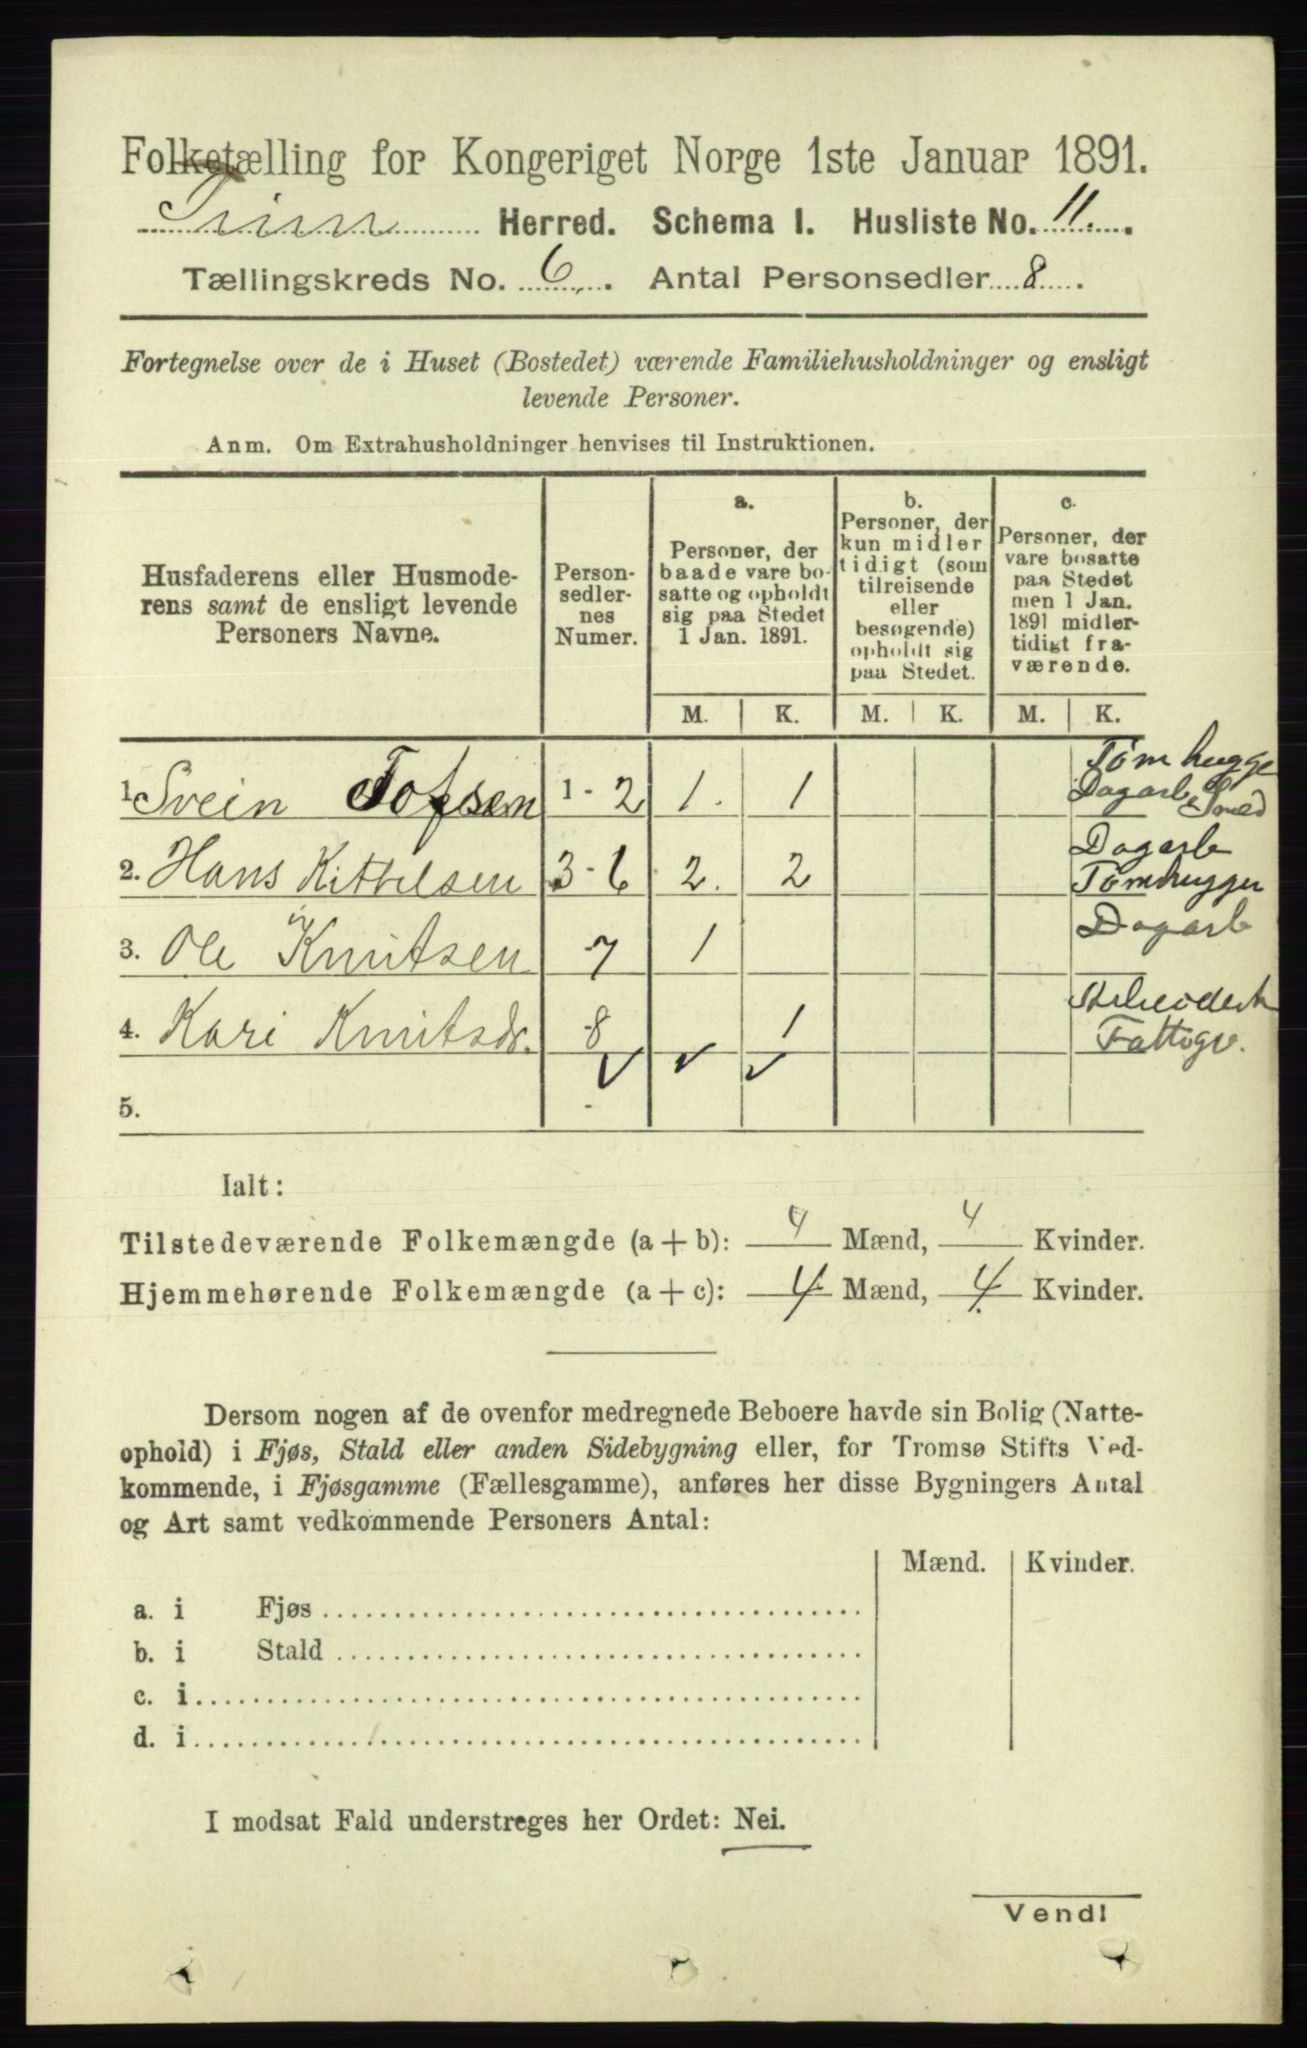 Folketælling for Kongeriget Norge 1ste Januar 1891.
Tinn Herred. Schema I. Husliste No. 11.
Tællingskreds No. 6. Antal Personsedler 8.
Fortegnelse over de i Huset (Bostedet) værende Familiehusholdninger og ensligt
levende Personer.
Anm. Om Extrahusholdninger henvises til Instruktionen.
Husfaderens eller Husmode-
rens samt de ensligt levende
Personers Navne.
Person-
sedler-
nes
Numer.
a.
Personer, der
baade vare bo-
satte og opholdt
sig paa Stedet
1 Jan. 1891.
b.
Personer, der
kun midler
tidigt (som
tilreisende
eller
besøgende)
opholdt sig
paa Stedet.
c.
Personer, der
vare bosatte
paa Stedet
men 1 Jan.
1891 midler-
tidigt fra-
værende.
M. K. M. K. M. K.
1. Svein Tofsen 1-2 1. 1 Tømhugge
Dagarb. Smed
2. Hans Kittelsen 3-6 2. 2 Dagarb
Tømhugger
3. Ole Knutsen 7 1 Dagarb
4. Kari Knutsdr. 8 1
Fattigv.
5.
Ialt:
Tilstedeværende Folkemængde (a+b): 4 Mænd, 4 Kvinder.
Hjemmehørende Folkemængde (a+c): 4 Mænd, 4 Kvinder.
Dersom nogen af de ovenfor medregnede Beboere havde sin Bolig (Natte-
ophold) i Fjøs, Stald eller anden Sidebygning eller, for Tromsø Stifts Ved-
kommende, i Fjøsgamme (Fællesgamme), anføres her disse Bygningers Antal
og Art samt vedkommende Personers Antal:
Mænd. Kvinder.
a. i Fjøs
b. i Stald
c. i
d. i
I modsat Fald understreges her Ordet: Nei.
Vend!